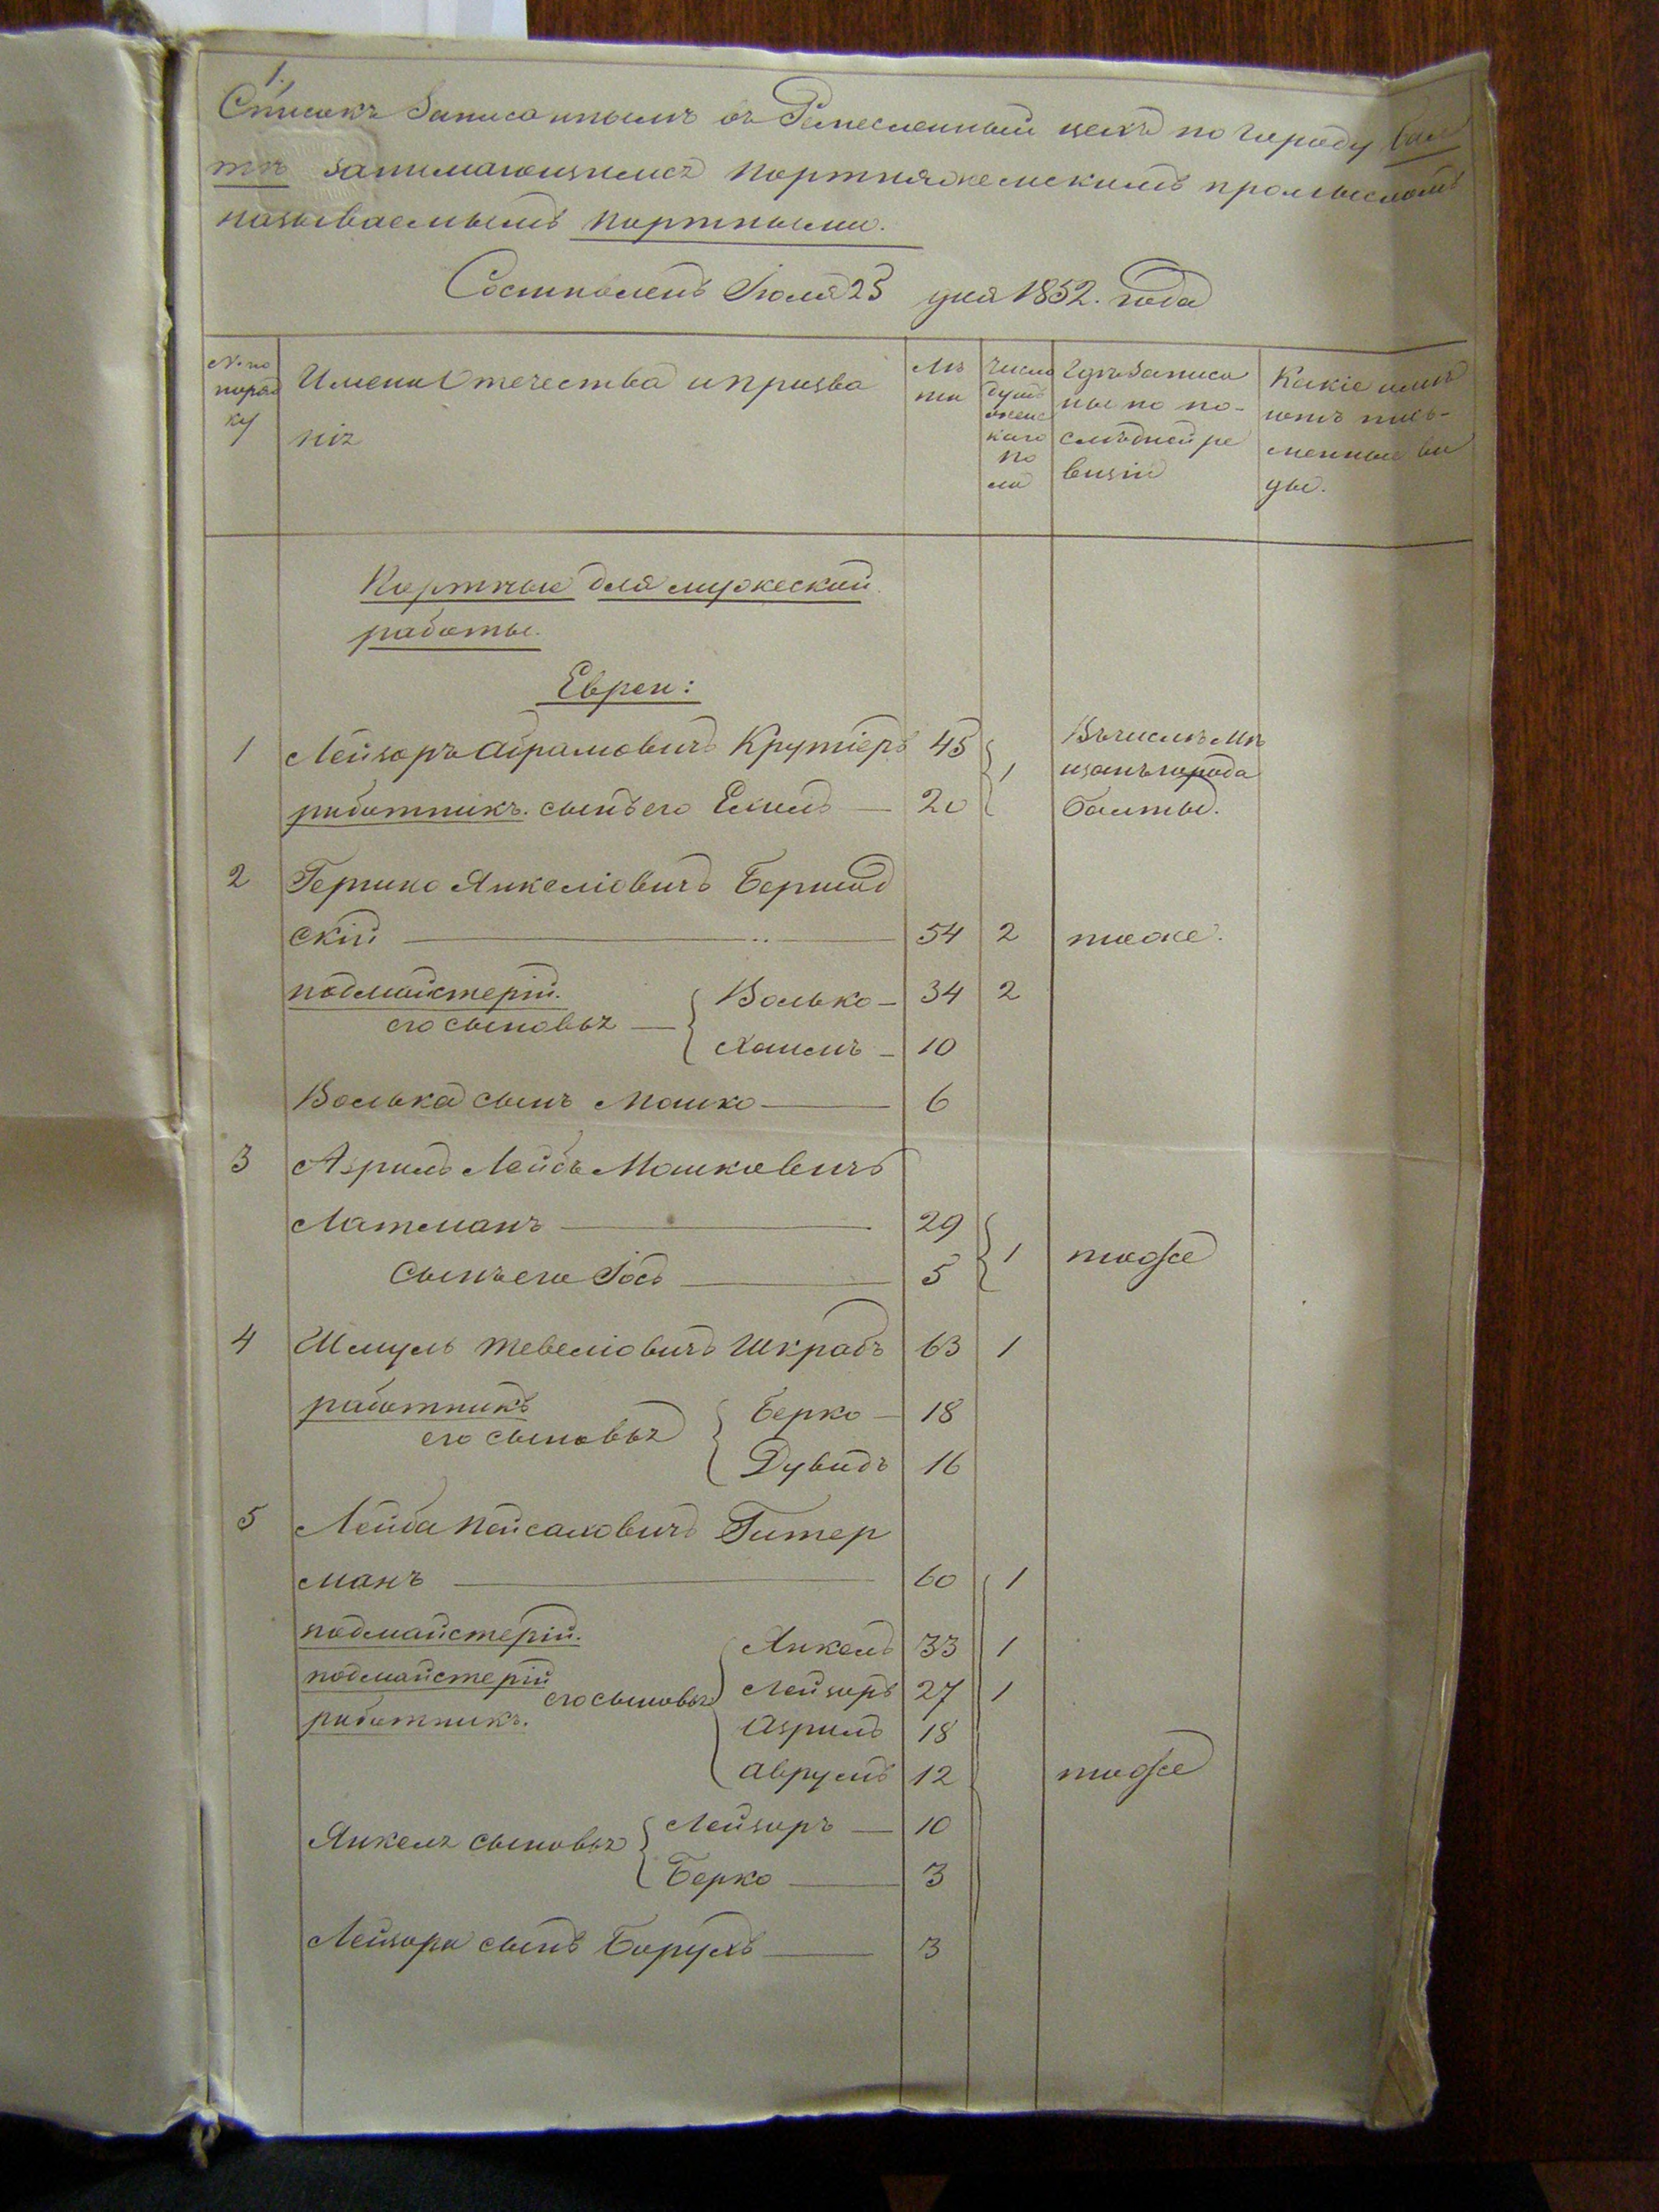 1.
Списокъ Записаннымъ въ Ремесленный цехъ по городу Бал
тѣ занимающимся портняжескимъ промысломъ
называемымъ портными.
Составленъ Іюля 25 дня 1852. года
№ по порядку
Имена Отечества и прозва
нія
Лѣ
та
Число
душъ
женс
каго
по
ла
Гдѣ записа
ны по по-
слѣдней ре
визіи
Какіе имѣ
ютъ пись-
менные ви
ды.
Портные для мужеской
работы.
Евреи:
1 Лейзоръ Абрамовичъ Крутіеръ 45
работникъ. сынъ его Ехилъ — 20
1
Въ числѣ мѣ
щанъ города
Балты.
2 Гершко Янкеліовичъ Бершад
скій — 54 2 тоже.
подмайстерій.
его сыновья — Волько — 34 2
Хаимъ — 10
Волька сынъ Мошко — 6
3 Азрилъ Лейбъ Мошковичъ
Латманъ — 29
сынъ его Іосъ — 5
1 тоже
4 Шмуль Тевеліовичъ Шкрабъ 63 1
работникъ
его сыновья Берко — 18
Дувидъ 16
5 Лейба Пейсаховичъ Гитер
манъ — 60 1
подмайстерій. Янкель 33 1
подмайстерій его сыновья Лейзоръ 27 1
работникъ. Азрилъ 18
Аврумъ 12 тоже
Янкеля сыновья Лейзоръ — 10
Берко — 3
Лейзора сынъ Борухъ — 3